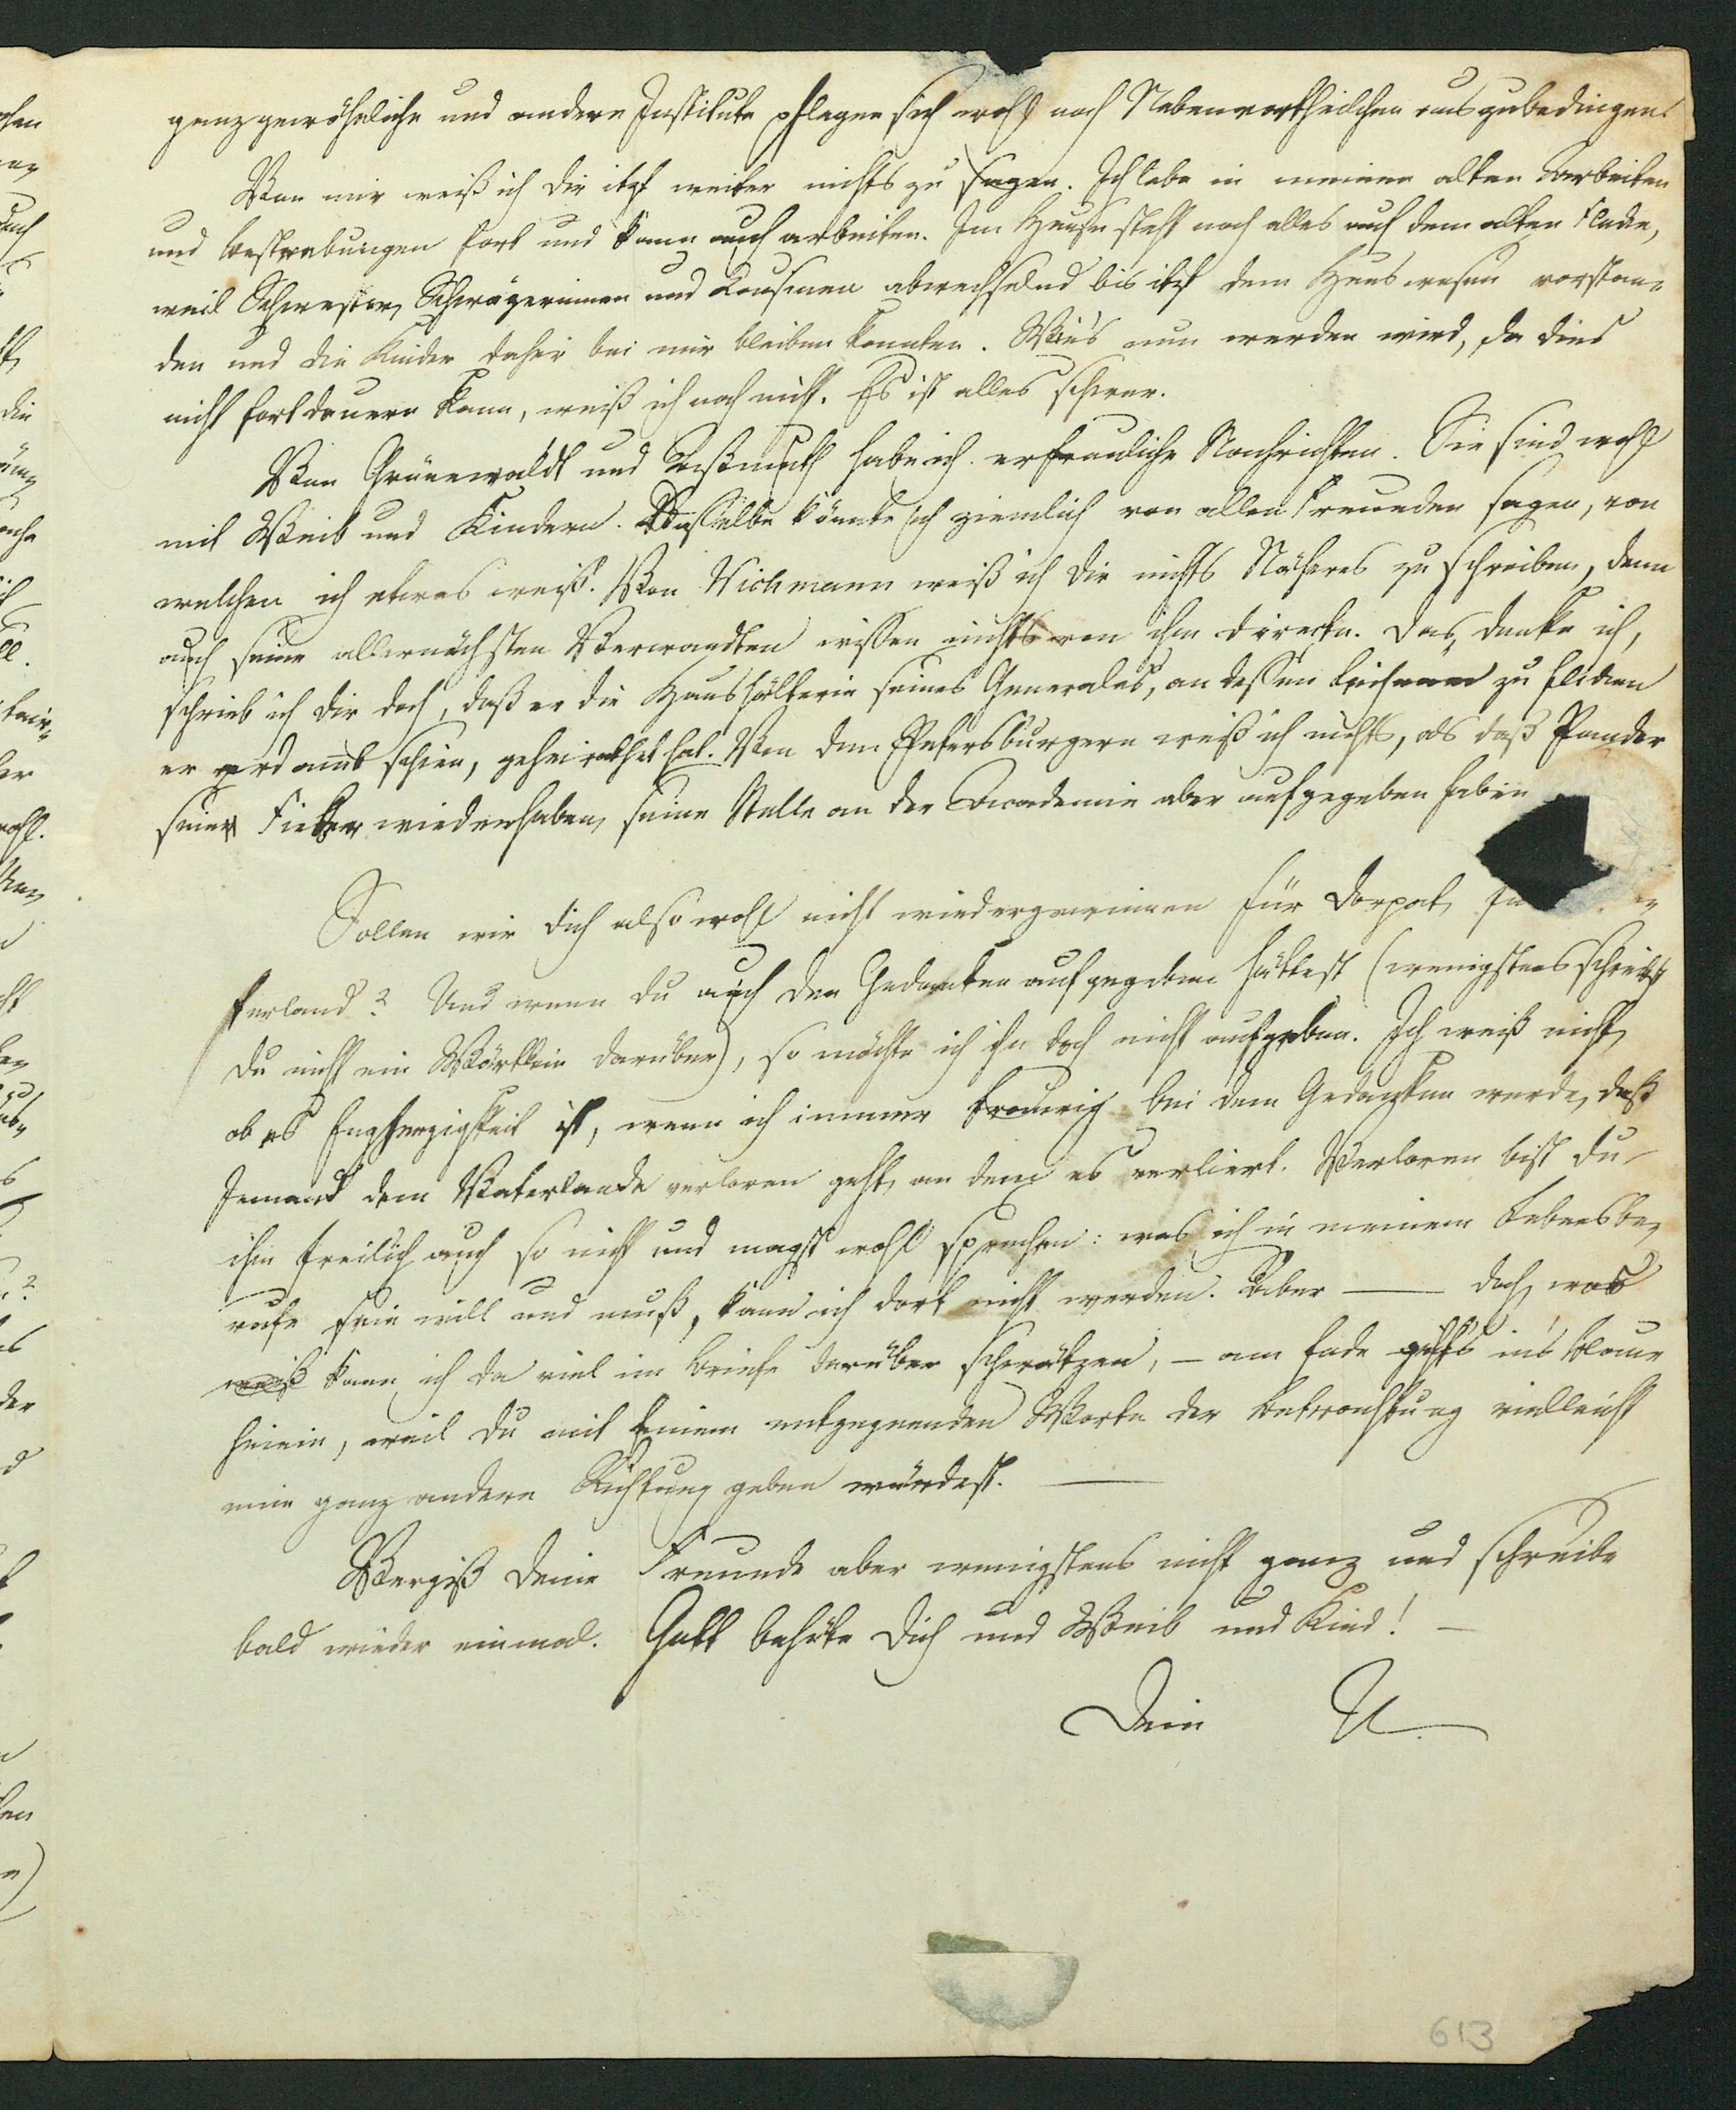 ganz gewöhnliche und andere Institute pflegen sich wohl noch Nebenvortheilchen auszubedingen.
Von mir weiß ich Dir itzt weiter nichts zu sagen. Ich lebe in meinen alten Arbeiten
und Bestrebungen fort und kann auch arbeiten. Im Hause steht noch alles auf dem alten Flecke,
weil Schwester, Schwägerinnen und Cousinen abwechselnd bis itzt dem Hauswesen vorstan-
den und die Kinder daher bei mir bleiben konnten. Wie's nun werden wird, da dies
nicht fortdauern kann, weiß ich noch nicht. Es ist alles schwer.
Von Grünewaldt und Aßmuth habe ich erfreuliche Nachrichten. Sie sind wohl
mit Weib und Kindern. Dasselbe könnte ich ziemlich von allen Freunden sagen, von
welchen ich etwas weiß. Von Wichmann weiß ich Dir nichts Näheres zu schreiben, denn
auch seine allernächsten Verwandten wissen nichts von ihm directe. Das, denke ich,
schrieb ich Dir doch, daß er die Haushälterin seines Generales, an dessen zu
er verdammt schien, geheirathet hat. Von den Petersburgern weiß ich nichts, als daß Pander
seine Fieber wiederhaben, seine Stelle an der Academie aber aufgegeben haben
Sollen wir Dich also wohl nicht wiedergewinnen für Dorpat,
terland? Und wenn Du auch den Gedanken aufgegeben hättest (wenigstens schreibst
Du nicht ein Wörtlein darüber), so möchte ich ihn doch nicht aufgeben. Ich weiß nicht,
ob es Engherzigkeit ist, wenn ich immer traurig bei dem Gedanken werde, daß
Jemand dem Vaterlande verloren geht, an dem es verliert. Verloren bist Du
ihm freilich auch so nicht und magst wohl sprechen: was ich in meinem Lebensbe-
rufe sein will und muß, kann ich dort nicht werden. Aber —— doch, was
weiß kann ich da viel im Briefe darüber schwätzen, – am Ende geht's in's Blaue
hinein, weil Du mit Einem entgegnenden Worte der Betrachtung vielleicht
eine ganz andere Richtung geben würdest. ——
Vergiß Deine Freunde aber wenigstens nicht ganz und schreibe
bald wieder einmal. Gott behüte Dich und Weib und Kind! –
Dein U.
613